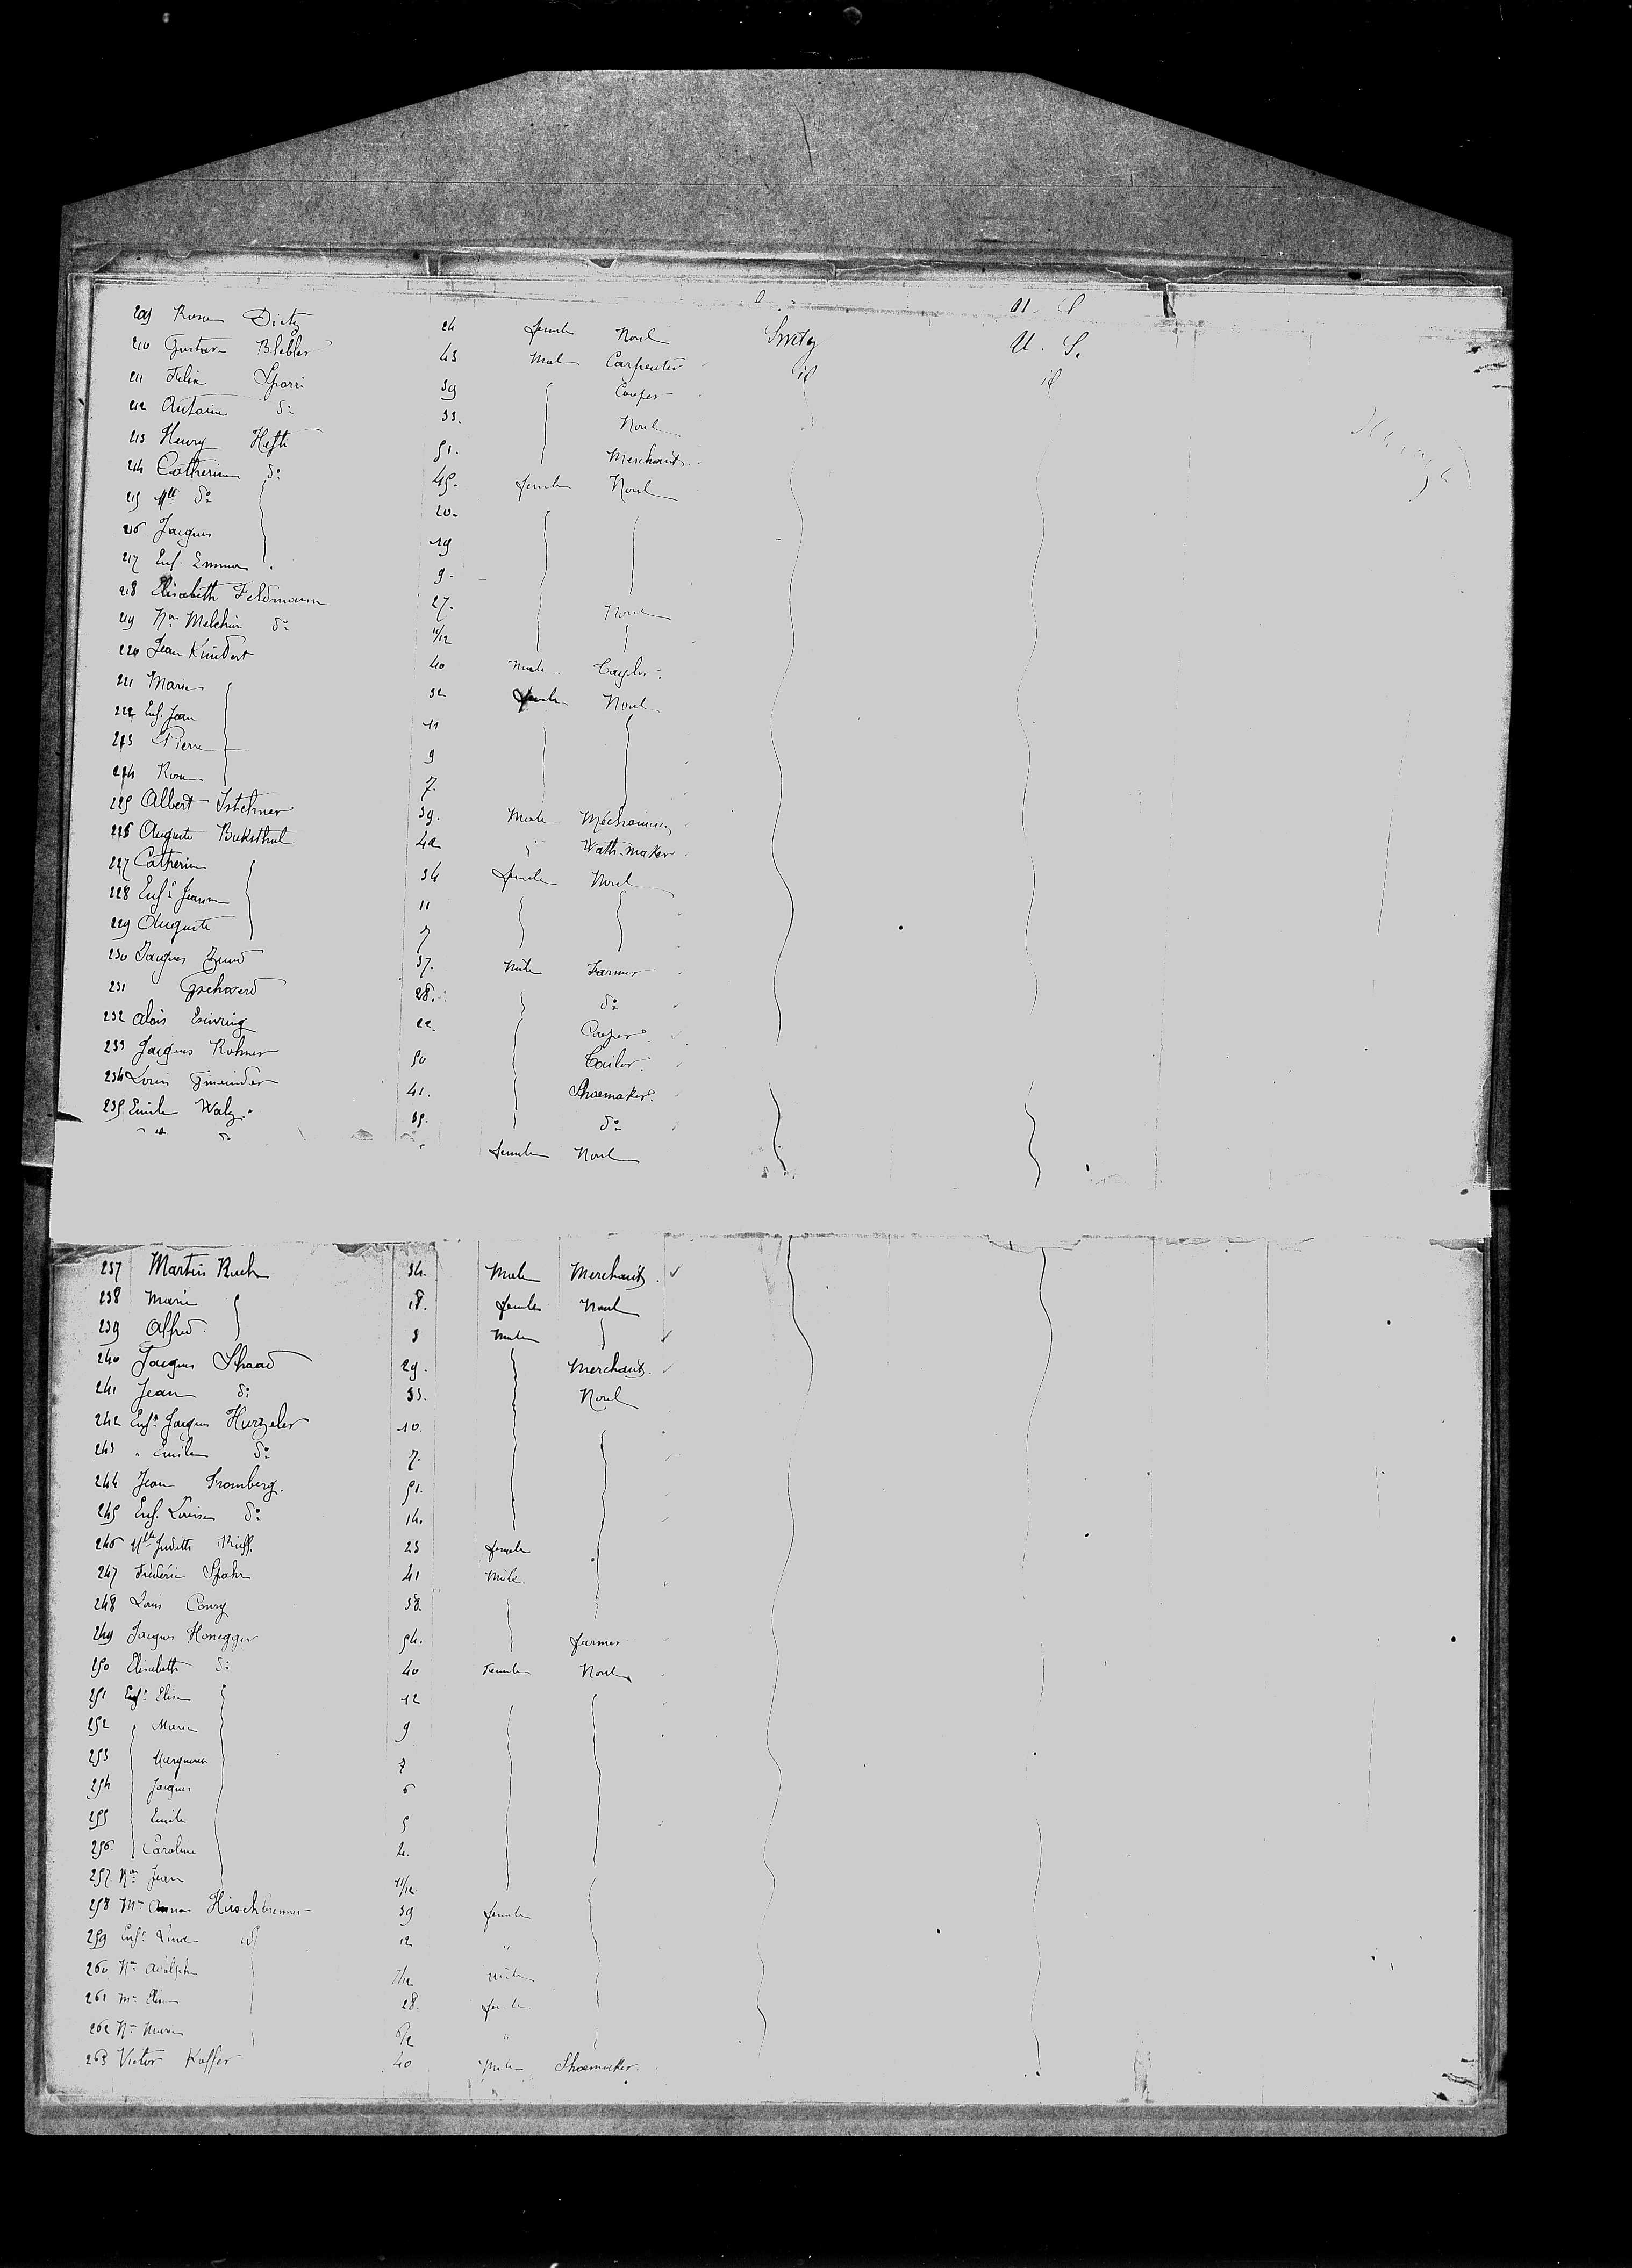 U. S
209 Rosa Dietz 24 female None Switz U. S.
210 Gustave Blebler 43 Male Carpenter id id
211 Felix Sporri 39 Cooper
212 Antoine do 33. None
213 Henry Hefti 51. Merchant
214 Catherine do 45. female None
215 Mlle do 20.
216 Jacques 19
217 Enf. Emma 9.
218 Elisabeth Feldmann 27. None
219 Non Melchior do 11/12
220 Jean Kundert 40 Male Taylor.
221 Marie 32 female None
222 Enf. Jean 11
223 Pierre 9
224 Rosa 7.
225 Albert 39. Male
226 Auguste 42 Wath-maker
227 Catherine 34 female None
228 Enfts Jeanne 11
229 Auguste 7
230 Jacques Zund 37. Male Farmer
231 Gschwend 28. do
232 Alois 22. Cooper
233 Jacques Rohner 50 Tailor.
234 Louis Gmeinder 41. Shoemaker.
235 Emile Walz. 35. do
do female None
237 Martin Ruch 34. Male Merchant
238 Marie 18. female None
239 Alfred 3 Male
240 Jacques Shaad 29. Merchant
241 Jean do 33. None
242 Enfts Jacques Hurzeler 10.
243 " Emile do 7.
244 Jean Fromberg. 51.
245 Enf. Louise do 14.
246 Mlle Judith Rieff. 23 female
247 Frédéric Spahr 41 Male.
248 Louis Coury 38.
249 Jacques Honegger 54. farmer
250 Elisabeth do 40 Female None
251 Enfts Elise 12
252 Marie 9
253 7
254 Jacques 6
255 Emile 5
256. Caroline 4.
257. Non Jean 11/12.
258 Me Anna 39 female
259 Enfts 12 "
260 Non Adolphe 7/12 male
261 Me Elise 28 female
262 Non "
263 Victor Koffer 40 Male Shoemaker.